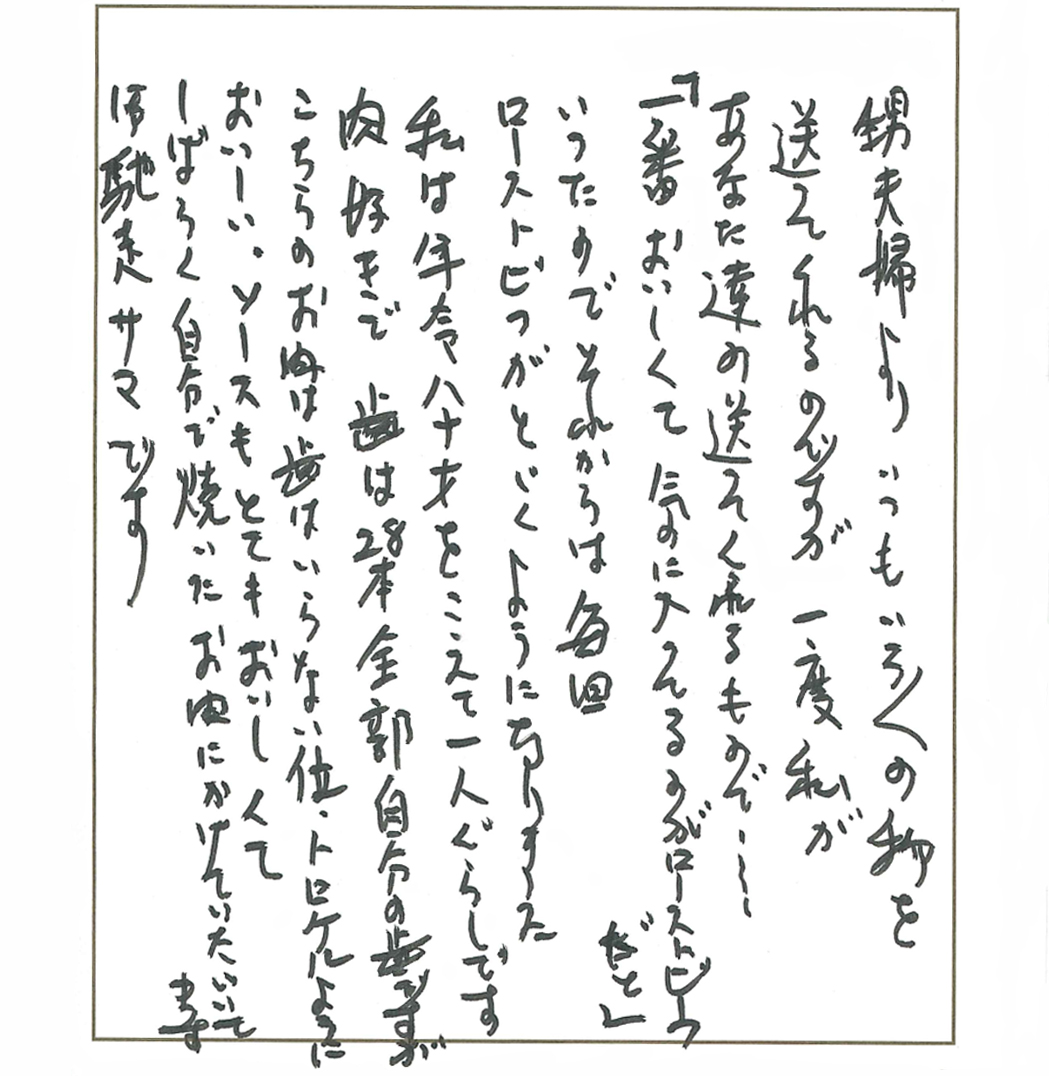 甥夫婦よりいつもいろ〳〵の物を
送ってくれるのですが 一度私が
あなた達の送ってくれるもので〜〜
「一番おいしくて 気に入ってるのがローストビーフ
だと」
いったのでそれからは毎回
ローストビフがとどくようになりました
私は年令八十才をこえて一人ぐらしです
肉好きで 歯は28本全部自分の歯ですが
こちらのお肉は歯はいらない位、トロケルように
おいしい。ソースもとてもおいしくて
しばらく自分で焼いたお肉にかけていたいています
ほ馳走サマです